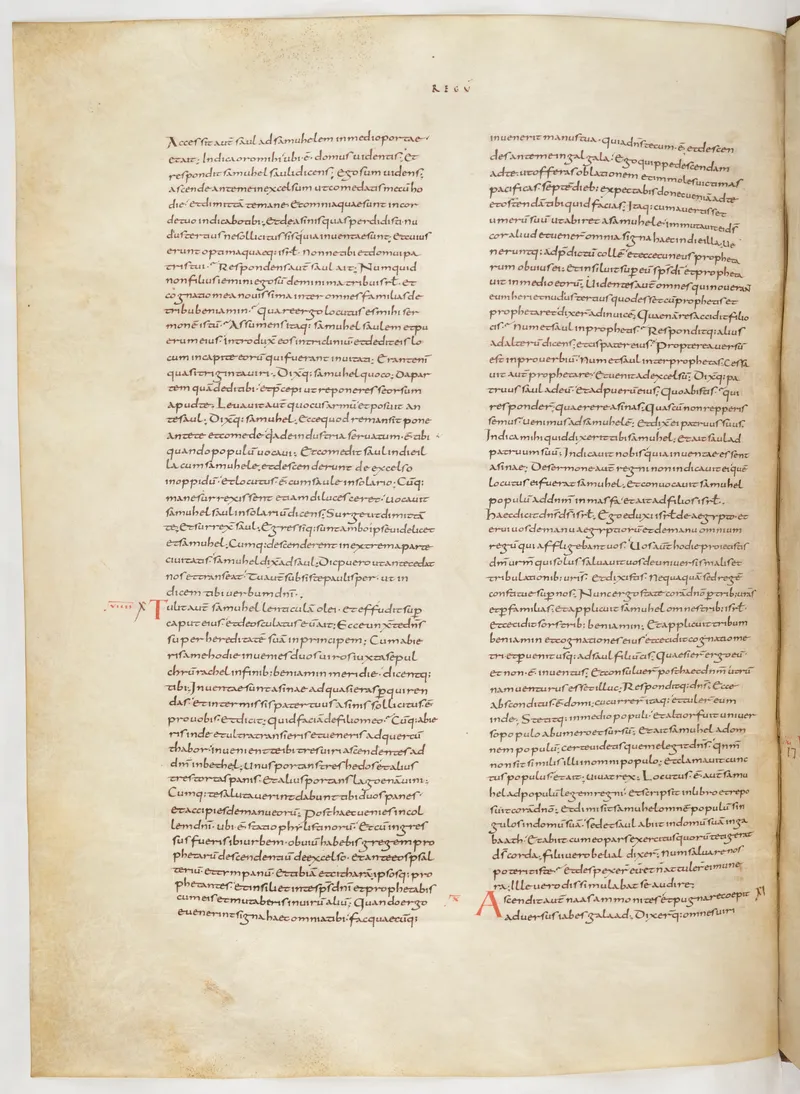 REGŪ
Accessit aut̄ saul ad samuhelem in medio portae
et ait; Indica oro mihi ubi ē domus uidentis; Et
respondit samuhel sauli dicens; Ego sum uidens;
ascende ante me in excelsum ut comedatis mecū ho
die et dimittā te mane; Et omnia quae sunt in cor
de tuo indicabo tibi; Et de asinis quas perdidisti nu
dustertius ne sollicitus sis quia inuentae sunt; Et cuius
erunt optima quaeq; isrł nonne tibi et domui pa
tris tui; Respondens aut̄ saul ait; Numquid
non filius iemini ego sū de minima tribu isrł et
cognatio mea nouissima inter omnes familias de
tribu beniamin; Quare ergo locutus es mihi ser
monē istū; Assumens itaq; samuhel saulem et pu
erum eius introdux̄ eos in tricliniū et dedit eis lo
cum in capite eorū qui fuerant inuitati; Erant enī
quasi triginta uiri; Dixitq; samuhel quoco; Da par
tem quā dedi tibi et p̄cepi ut reponeres seorsum
apud te; Leuauit aut̄ quocus armū et posuit an
te saul; Dixitq; samuhel; Ecce quod remansit pone
ante te et comede q̄a de industria seruatum ē tibi
quando populū uocaui; Et comedit saul in die il
la cum samuhele; et descenderunt de excelso
in oppidū et locutus ē cum saule in solario; Cūq;
mane surrexissent et iam dilucesceret uocauit
samuhel saul in solariū dicens; Surge ut dimittā
te; Et surrex̄ saul; Egressiq; sunt ambo ipse uidelicet
et samuhel; Cumq; descenderent in extrema parte
ciuitatis samuhel dix̄ ad saul; Dic puero ut antecedat
nos et transeat; Tu aut̄ subsiste paulisper ut in
dicem tibi uerbum dnī;
X Tulit aut̄ samuhel lenticulā olei et effudit sup̄
caput eius et deosculatus ē eū ait; Ecce unxit te dn̄s
super hereditatē suā in principem; Cum abie
ris a me hodie inuenies duos uiros iuxta sepul
chrū rachel in finib; beniamin meridie dicentq;
tibi; Inuentae sunt asinae ad quas ieras p̄quiren
das et intermissis pater tuus asinis sollicitus ē
pro uobis et dicit; quid faciā de filio meo; Cūq; abie
ris inde et ultra transieris et ueneris ad quercū
thabor inuenient te ibi tres uiri ascendentes ad
dnm̄ in bethel; Unus portans tres hedos et alius
tres tortas panis et alius portans lagoenā uini;
Cumq; te salutauerint dabunt tibi duos panes
et accipies de manu eorū; Post haec uenies in col
lem dnī ubi ē statio phylistinorū; Et cū ingres
sus fueris ibi urbem obuiū habebis gregem pro
phetarū descendentiū de excelso et ante eos psal
teriū et tympanū et tibiā et citharā ipsosq; pro
phetantes et insiliet in te sp̄s dnī et prophetabis
cum eis et mutaberis in uirū aliū; Quando ergo
euenerint signa haec omnia tibi fac quaecūq;
inuenerit manus tua quia dn̄s tecum ē et descen
des ante me in galgala; Ego quippe descendam
ad te ut offeras oblationem et immoles uictimas
pacificas; septē dieb; expectabis donec ueniā ad te
et ostendā tibi quid facias; Itaq; cum auertisset
umerū suū ut abiret a samuhele immutauit ei d̄s
cor aliud et uener̄ omnia signa haec in die illa; Ue
neruntq; ad p̄dictū collē et ecce cuneus propheta
rum obuius ei; Et insiluit sup̄ eū sp̄s dī et propheta
uit in medio eorū; Uidentes aut̄ omnes qui nouerant
eum heri et nudustertius quod esset cū prophetis et
prophetaret dixer̄ ad inuicē; Quaenā res accidit filio
cis; Num et saul in prophetis; Responditq; alius
ad alterū dicens; et quis pater eius; Propterea uersū
est in prouerbiū; Num et saul inter prophetas; Cessa
uit aut̄ prophetare et uenit ad excelsū; Dixitq; pa
truus saul ad eū et ad puerū eius; Quo abistis; qui
responder̄; quaerere asinas; Quas cū non repperis
semus uenimus ad samuhelē; Et dix̄ ei patruus suus;
Indica mihi quid dixerit tibi samuhel; et ait saul ad
patruum suū; Indicauit nobis quia inuentae essent
asinae; De sermone aut̄ regni non indicauit ei quē
locutus ei fuerat samuhel; Et conuocauit samuhel
populū ad dnm̄ in masfa et ait ad filios isrł;
Haec dicit dn̄s d̄s isrł; Ego eduxi isrł de aegypto et
erui uos de manu aegyptiorū et de manu omnium
regū qui affligebant uos; Uos aut̄ hodie proiecistis
dm̄ urm̄ qui solus saluauit uos de uniuersis malis et
tribulationib; uris̄ et dixistis; Nequaquā sed regē
constitue sup̄ nos; Nunc ergo state corā dnō p̄ tribus uras̄
et p̄ familias; et applicuit samuhel omnes tribus isrł
et cecidit sors trib; beniamin; Et applicuit tribum
beniamin et cognationes eius et cecidit cognatio me
tri et p̄uenit usq; ad saul filiū cis; Quaesier̄ ergo eū
et non ē inuentus; Et consuluer̄ post haec dnm̄ utrū
nam uenturus esset illuc; Responditq; dn̄s; Ecce
absconditus ē domi; cucurrer̄ itaq; et tuler̄ eum
inde; Stetitq; in medio populi et altior fuit uniuer
so populo ab umero et sursū; Et ait samuhel ad om
nem populū; certe uidetis quem elegit dn̄s qnm̄
non sit similis illi in omni populo; et clamauit cunc
tus populus et ait; Uiuat rex; Locutus ē aut̄ samu
hel ad populū legem regni et scripsit in libro et repo
suit corā dnō; Et dimisit samuhel omnē populū sin
gulos in domū suā; sed et saul abiit in domū suā in ga
baath; Et abiit cum eo pars exercitus quorū tetigerat
d̄s corda; filii uero belial dixer̄; Num saluare nos
poterit iste; Et despexer̄ eū et n̄ attuler̄ ei mune
ra; Ille uero dissimulabat se audire;
Ascendit aut̄ naas ammonites et pugnare coepit XI
aduersū iabes galaad; Dixer̄q; omnes uiri